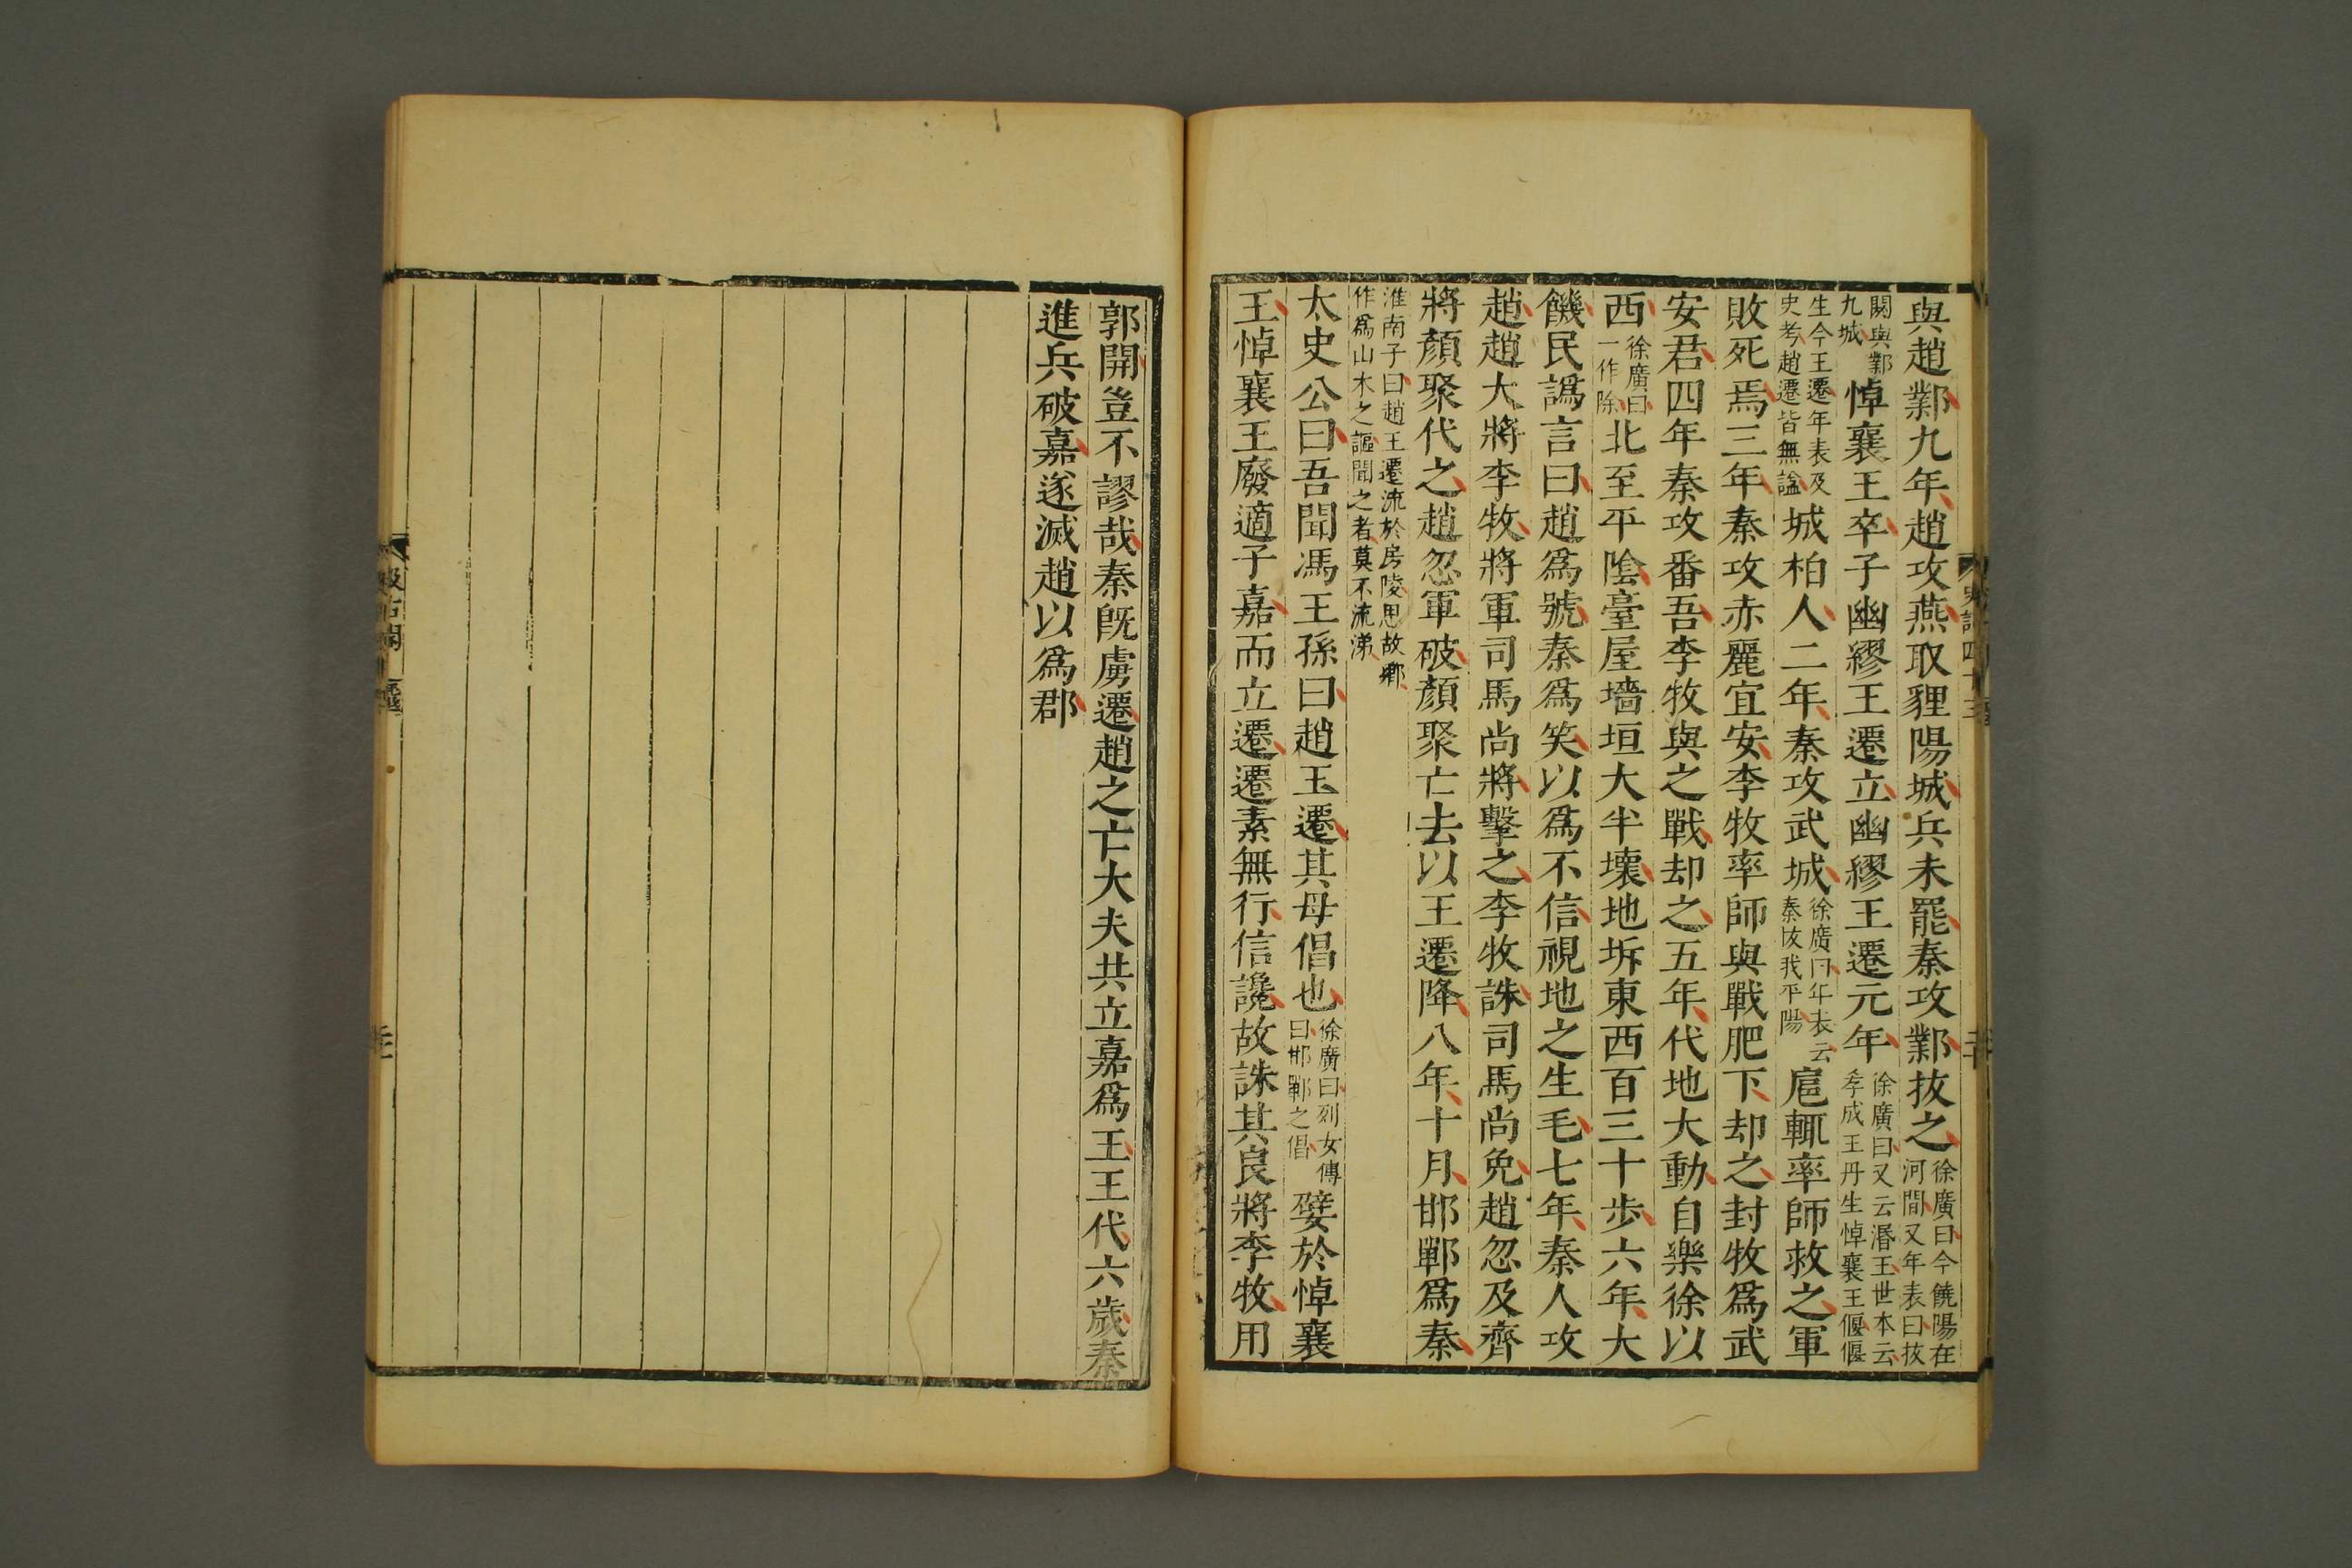 與趙鄴九年趙攻燕取貍陽城兵未罷秦攻鄴拔之徐廣曰今饒陽在河間又年表曰拔
閼與鄴九城悼襄王卒子幽繆王遷立幽繆王遷元年徐廣曰又云湣王世本云孝成王丹生悼襄王偃偃
生今王遷年表及史考趙遷皆無諡城柏人二年秦攻武城徐廣曰年表云秦拔我平陽扈輒率師救之軍
敗死焉三年秦攻赤麗宜安李牧率師與戰肥下却之封牧爲武
安君四年秦攻番吾李牧與之戰却之五年代地大動自樂徐以
西徐廣曰一作除北至平陰臺屋墻垣大半壞地坼東西百三十步六年大
饑民譌言曰趙爲號秦爲笑以爲不信視地之生毛七年秦人攻
趙趙大將李牧將軍司馬尚將擊之李牧誅司馬尚免趙忽及齊
將顏聚代之趙忽軍破顏聚亡去以王遷降八年十月邯鄲爲秦
淮南子曰趙王遷流於房陵思故鄉作爲山木之謳聞之者莫不流涕
太史公曰吾聞馮王孫曰趙王遷其母倡也徐廣曰列女傳曰邯鄲之倡嬖於悼襄
王悼襄王廢適子嘉而立遷遷素無行信讒故誅其良將李牧用
史記四十三
郭開豈不謬哉秦旣虜遷趙之亡大夫共立嘉爲王王代六歲秦
進兵破嘉遂滅趙以爲郡